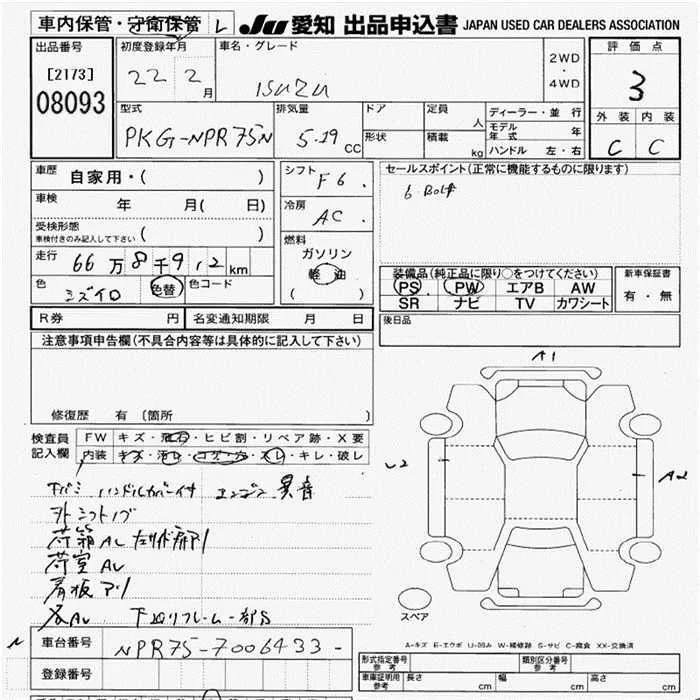 車内保管・守衛保管 L JU 愛知 出品申込書 JAPAN USED CAR DEALERS ASSOCIATION
出品番号 初度登録年月 車名・グレード 2WD・4WD 評価点
[2173] 22 2月 ISUZU 3
08093 外装 内装
型式 排気量 ドア 定員 人 ディーラー・並行
モデル年式 年
PKG-NPR75N 5.19 CC 形状 積載 kg ハンドル 左・右 C C
車歴 自家用・( ) シフト F6 セールスポイント(正常に機能するものに限ります)
車検 年 月( 日) 冷房 AC 6 Bolt
受検形態 ( )
車検付きのみ記入して下さい
燃料
走行 66万8千912km ガソリン
軽油
( )
装備品(純正品に限り○をつけてください) 新車保証書
色 ミズイロ 色替 色コード PS PW エアB AW 有・無
SR ナビ TV カワシート
R券 円 名変通知期限 月 日 後日品
注意事項申告欄(不具合内容等は具体的に記入して下さい)
修復歴 有 (箇所 )
A1
検査員 FW キズ・飛石・ヒビ割・リペア跡・X要
記入欄 内装 キズ・汚レ・コゲ・穴・スレ・キレ・破レ
U2 A2
ハンドルカバー付 エンジン異音
社外シフトノブ
荷箱AL
荷室AU
看板アリ
下回リフレーム一部S
スペア
車台番号 NPR75-7006433-
A-キズ E-エクボ U-凹み W-補修跡 S-サビ C-腐食 XX-交換済
形式指定番号 参考 類別区分番号 参考
登録番号 車庫証明用 参考 長さ cm 幅 cm 高さ cm